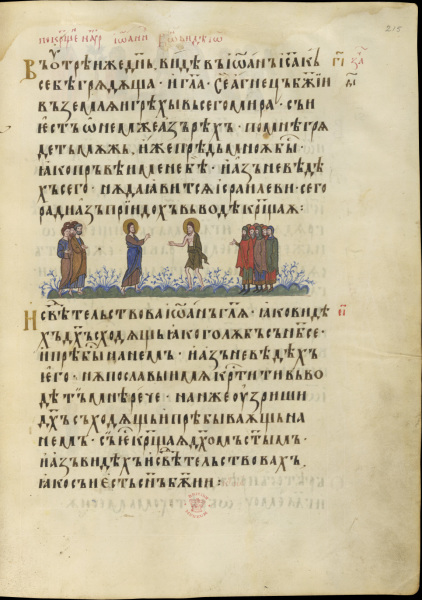 215
Въ ѹтрѣи же дн҃ь, видѣ іѡанъ і҃са къ
себѣ грѧдѫща · и гл҃а · се агнецъ бж҃іи
въземлѧи грѣхы въсего мира · съи
естъ ѡ немже азъ рѣхъ · по мнѣ грѧ
детъ мѫжь, иже прѣдъ мноѫ бы ·
ꙗко прьвѣи мене бѣ · и азъ не вѣдѣ
хъ его · нѫ да ꙗвитсѧ і҃сраилеви · сего
ради азъ пріидохъ въ водѣ кр҃щаѫ :
И свѣтельствова іѡанъ гл҃ѧ · ꙗко видѣ
хъ дх҃ъ сходѧщь ꙗко голѫбь съ нб҃се ·
и прѣбы на немъ · и азъ не вѣдѣхъ
его · нѫ пославыи мѧ кр҃тити въ во
дѣ тъи мнѣ рече · на нже оузриши
дх҃ъ съходѧщь и прѣбываѫщь на
немъ · съи е кр҃щаѧ дх҃омъ ст҃ымъ ·
и азъ видѣхъ и свѣтельствовахъ
ꙗко съи естъ сн҃ъ бж҃іи :